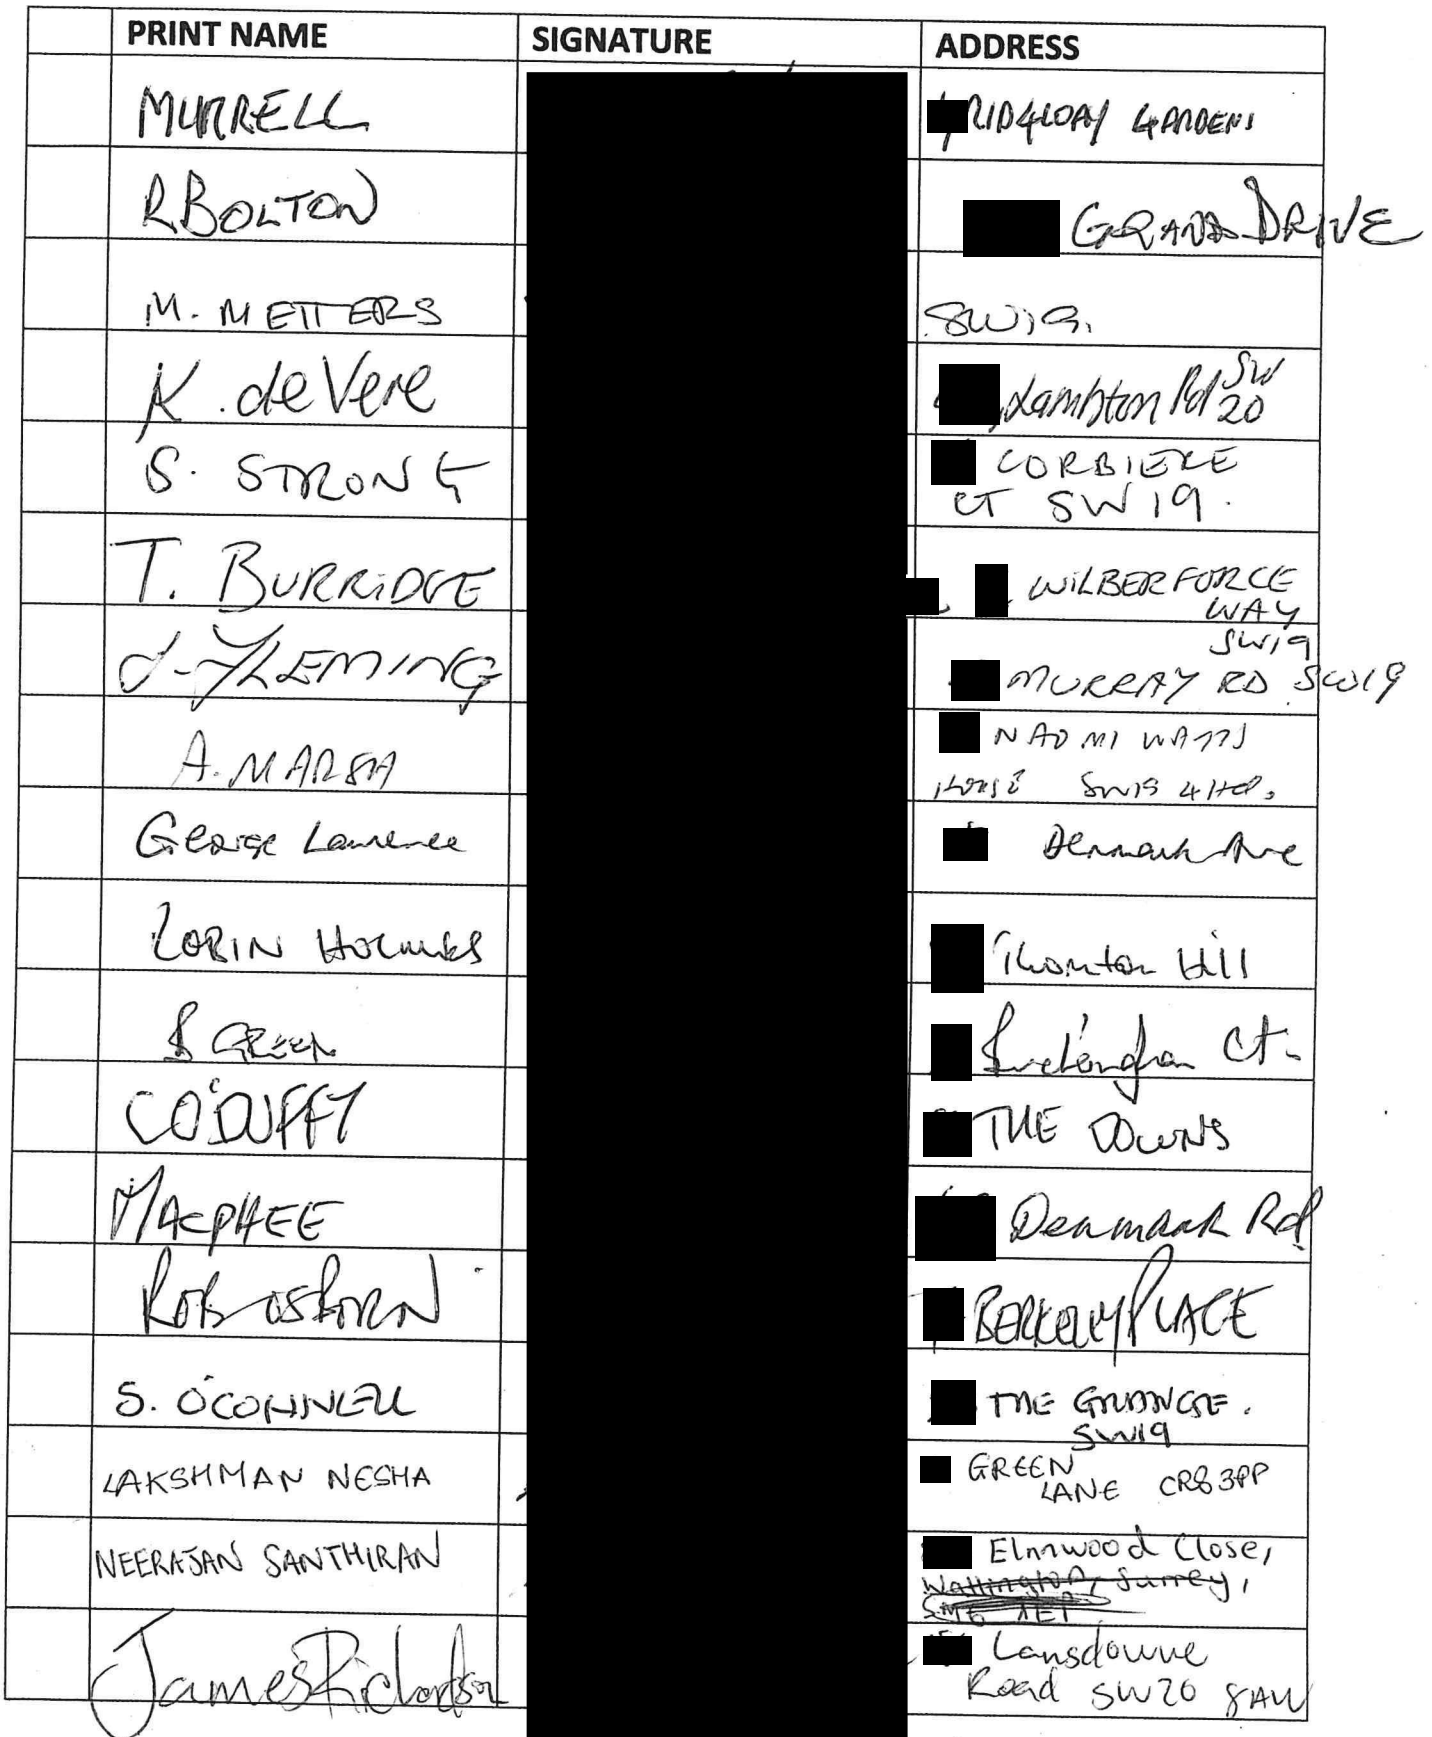 PRINT NAME SIGNATURE ADDRESS
MURRELL RIDGWAY GARDENS
R BOLTON GRAND DRIVE
M. METTERS SW19.
K. de Vere Lambton Rd SW
20
S. STRONG CORBIERE
CT SW19.
T. BURRIDGE WILBERFORCE
WAY
SW19
J. FLEMING MURRAY RD SW19
A. MARSH NAOMI WATTS
HOUSE SW19
George Lawrence Denmark Ave
ROBIN HOLMES Thornton Hill
S GREEN Ct.
C O'DUFFY THE DOWNS
MACPHEE Denmark Rd
ROB OSBORN BERKELEY PLACE
S. O'CONNELL THE GRANGE.
SW19
LAKSHMAN NESHA GREEN
LANE CR8 3PP
NEERAJAN SANTHIRAN Elmwood Close,
Wallington, Surrey,
James Richardson Lansdowne
Road SW20 8AW